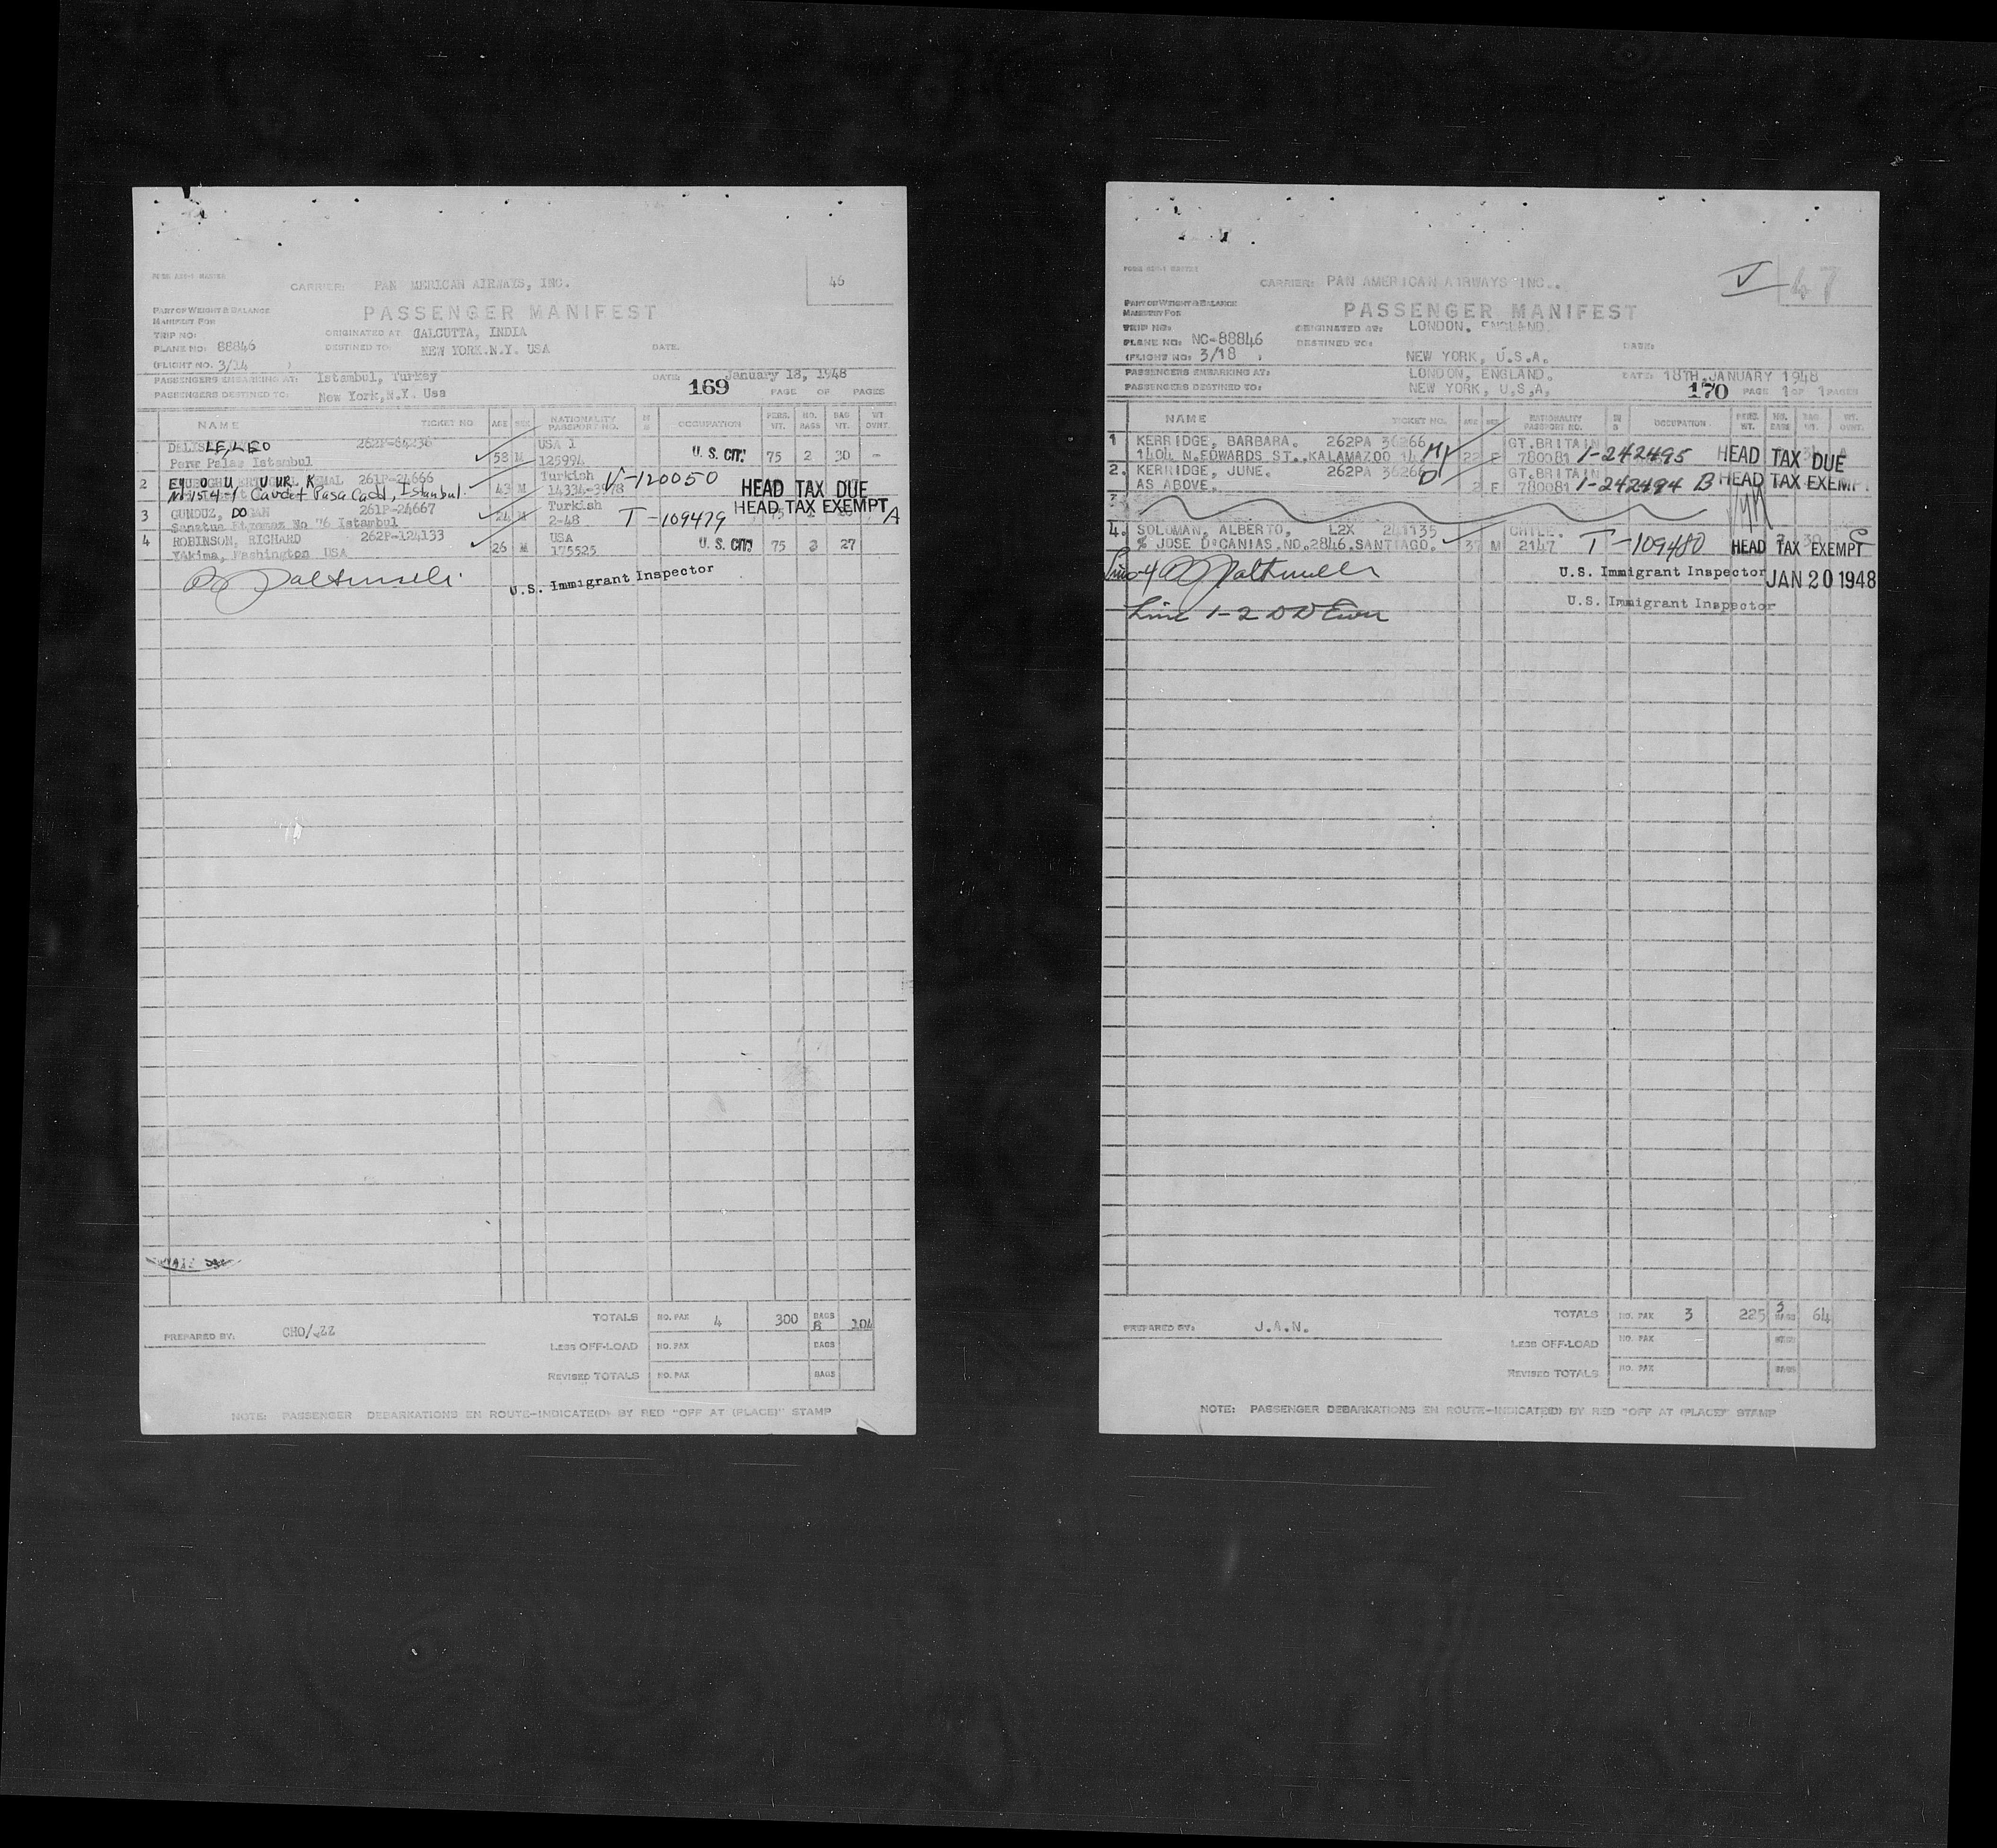 CARRIER: PAN MERICAN AIRWAYS, INC.
46
PASSENGER MANIFEST
PART OF WEIGHT & BALANCE
MANIFEST FOR
TRIP NO:
ORIGINATED AT CALCUTTA, INDIA
PLANE NO: 88846
DESTINED TO: NEW YORK.N.Y. USA
DATE:
(FLIGHT NO. 3/14 )
PASSENGERS EMBARKING AT: Istambul, Turkey
DATE: January 18, 1948
PASSENGERS DESTINED TO: New York,N.Y. Usa
169 PAGE OF PAGES
NAME TICKET NO AGE SEX NATIONALITY PASSPORT NO. OCCUPATION PERS. WT. NO. BAGS BAG WT. WT OVNT.
LE, LEO 262P-64236 USA 1
Pera Palas Istambul 58 M 125994 U. S. CIT. 75 2 30 -
2 261P-24666 Turkish V-120050
Cavdet Pasa Cadd, Istanbul. 43 M 14334-3978 HEAD TAX DUE
3 GUNDUZ, DOGAN 261P-24667 Turkish HEAD TAX EXEMPT A
No 76 Istambul 24 M 2-48 T-109479
4 ROBINSON, RICHARD 262P-124133 USA
Yakima, Washington USA 26 M 175525 U. S. CIT. 75 3 27
U.S. Immigrant Inspector
TOTALS NO. PAX 4 300 BAGS 8 104
PREPARED BY: CHO/
LESS OFF-LOAD NO. PAX BAGS
REVISED TOTALS NO. PAX BAGS
NOTE: PASSENGER DEBARKATIONS EN ROUTE-INDICATE(D) BY RED "OFF AT (PLACE)" STAMP
CARRIER: PAN AMERICAN AIRWAYS INC..
V 47
PASSENGER MANIFEST
PART OF WEIGHT & BALANCE
MANIFEST FOR
TRIP NO:
ORIGINATED AT: LONDON, ENGLAND.
PLANE NO: NC-88846
DESTINED TO: NEW YORK, U.S.A.
DATE:
(FLIGHT NO: 3/18 )
PASSENGERS EMBARKING AT: LONDON, ENGLAND.
DATE: 18TH.JANUARY 1948
PASSENGERS DESTINED TO: NEW YORK, U,S,A,
170 PAGE 1 OF 1 PAGES
NAME TICKET NO. AGE SEX NATIONALITY PASSPORT NO. OCCUPATION PERS. WT. NO. BAGS BAG WT. WT. OVNT.
1 KERRIDGE, BARBARA. 262PA 36266 GT.BRITAIN
1404 N.EDWARDS ST.,KALAMAZOO 14 22 F 780081 1-242495 HEAD TAX DUE A
2. KERRIDGE, JUNE. 262PA 36266 GT.BRITAIN
AS ABOVE. 2 F 780081 1-242494 B HEAD TAX EXEMPT
3
4. SOLOMAN, ALBERTO, L2X 241135 CHILE.
% JOSE D'CANIAS,NO.2846,SANTIAGO. 37 M 2147 T-109480 HEAD TAX EXEMPT C
U.S. Immigrant Inspector JAN 20 1948
U.S. Immigrant Inspector
Line 1-2
TOTALS NO. PAX 3 225 3 BAGS 64
PREPARED BY: J.A.N.
LESS OFF-LOAD NO. PAX BAGS
REVISED TOTALS NO. PAX BAGS
NOTE: PASSENGER DEBARKATIONS EN ROUTE-INDICATE(D) BY RED "OFF AT (PLACE)" STAMP